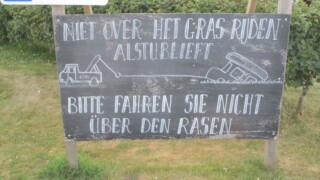 NIET OVER HET GRAS RIJDEN
ALSTUBLIEFT
BITTE FAHREN SIE NICHT
ÜBER DEN RASEN